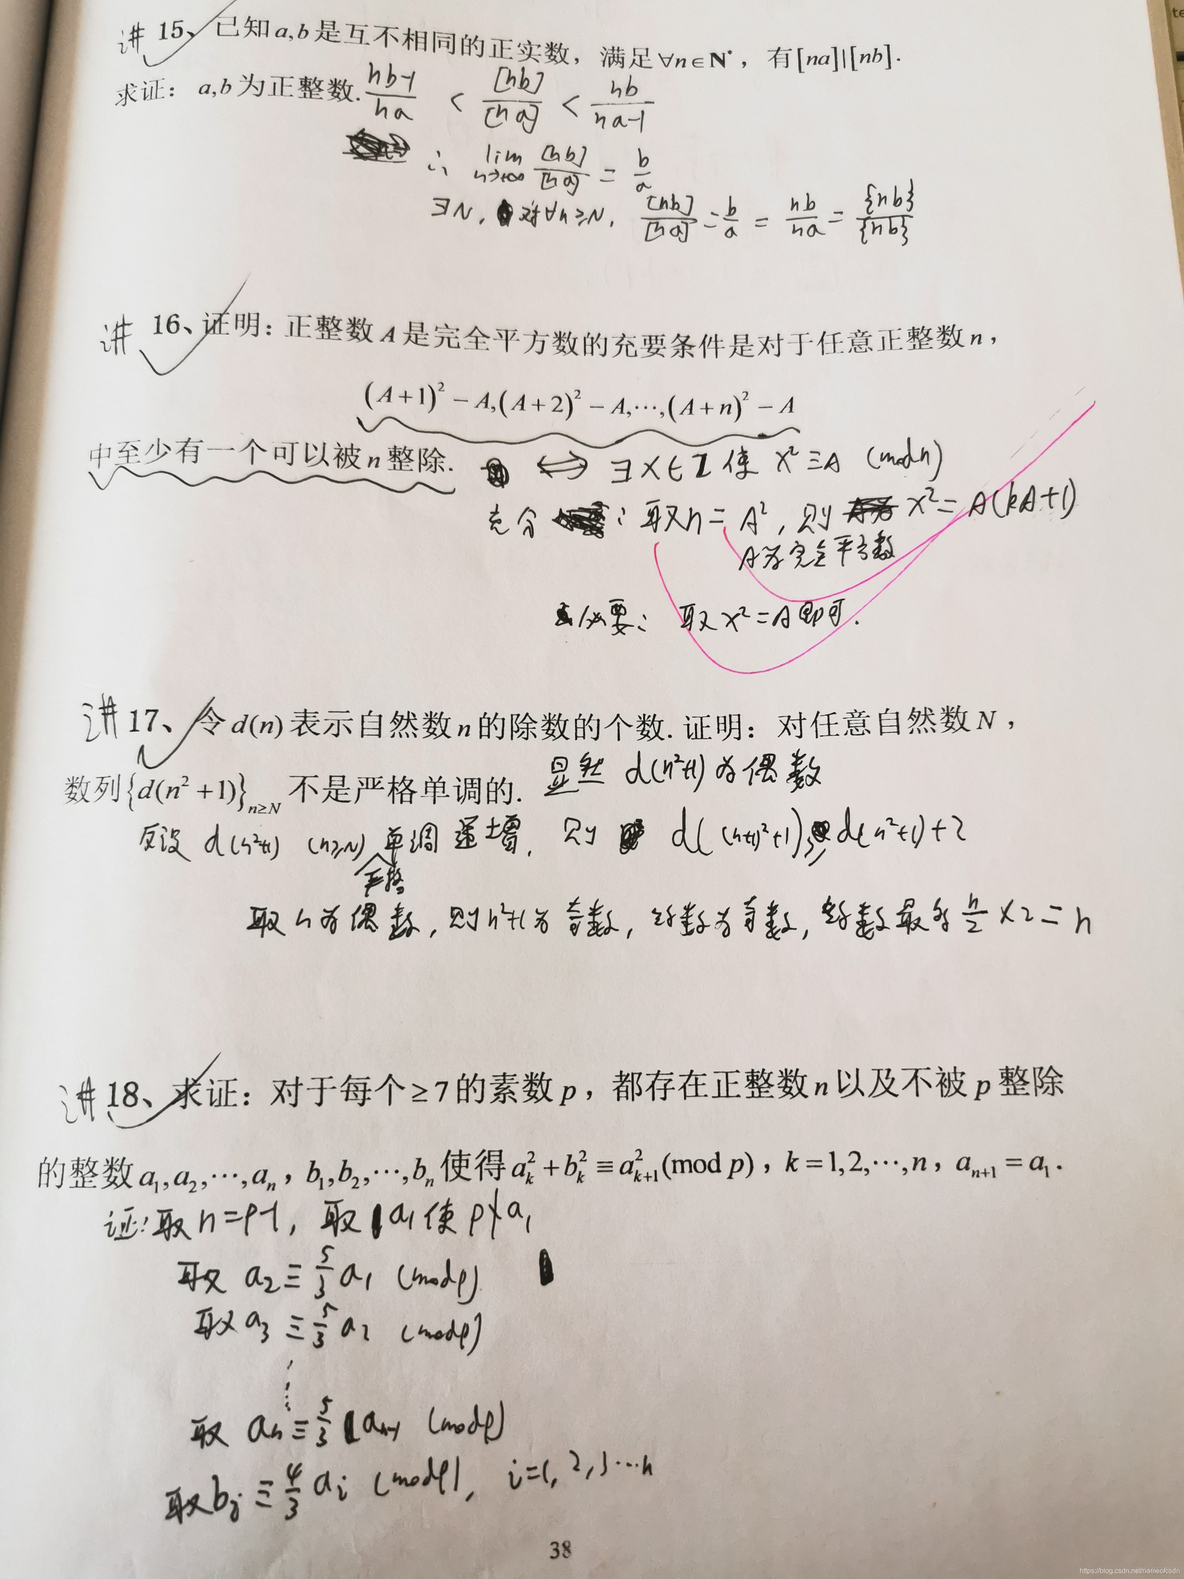 讲 15、已知a,b是互不相同的正实数，满足∀n∈N*，有[na]|[nb].
求证：a,b为正整数. (nb-1)/(na) < [nb]/[na] < (nb)/(na-1)
∴ lim n→+∞ [nb]/[na] = b/a
∃N，对∀n≥N，[nb]/[na] = b/a = nb/na = {nb}/{nb}
讲 16、证明：正整数A是完全平方数的充要条件是对于任意正整数n，
(A+1)²-A,(A+2)²-A,⋯,(A+n)²-A
中至少有一个可以被n整除. ⟺ ∃x∈Z 使 x²≡A (mod n)
充分：取n=A²，则 x²=A(kA+1)
A为完全平方数
必要：取x²=A即可.
讲 17、令d(n)表示自然数n的除数的个数. 证明：对任意自然数N，
数列{d(n²+1)}n≥N 不是严格单调的. 显然 d(n²+1)为偶数
反设 d(n²+1) (n≥N) 单调递增，则 d((n+1)²+1)≥d(n²+1)+2
严格
取n为偶数，则n²+1为奇数，约数为奇数，约数最多 n/2 ×2=n
讲 18、求证：对于每个≥7的素数p，都存在正整数n以及不被p整除
的整数a₁,a₂,⋯,aₙ，b₁,b₂,⋯,bₙ使得aₖ²+bₖ²≡aₖ₊₁²(mod p)，k=1,2,⋯,n，aₙ₊₁=a₁.
证：取n=p-1，取a₁使p∤a₁
取 a₂≡5/3 a₁ (mod p)
取 a₃≡5/3 a₂ (mod p)
⋮
取 aₙ≡5/3 aₙ₋₁ (mod p)
取bᵢ≡4/3 aᵢ (mod p)，i=1,2,3⋯n
38